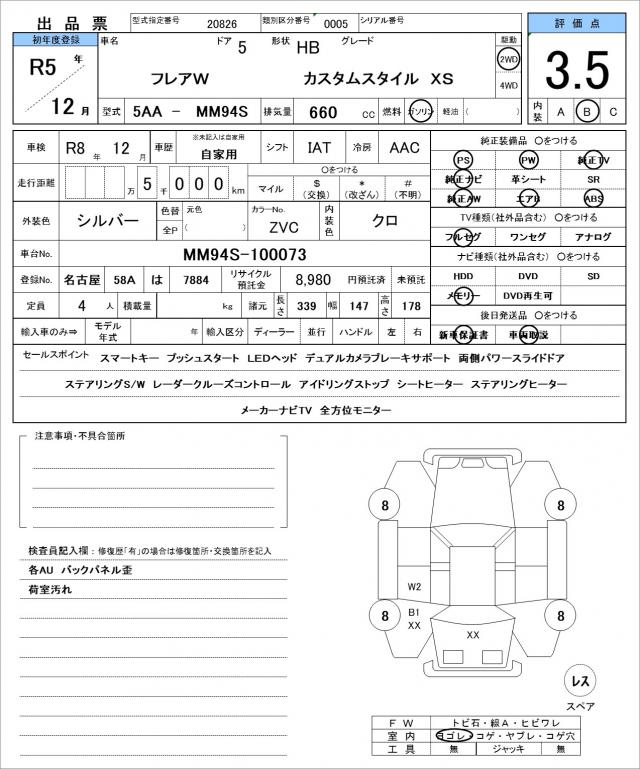 出品票 型式指定番号 20826 類別区分番号 0005 シリアル番号
評価点
初年度登録 車名 ドア 5 形状 HB グレード 駆動
R5 年 12 月 フレアW カスタムスタイル XS 2WD 4WD
3.5
型式 5AA - MM94S 排気量 660 cc 燃料 ガソリン 軽油 ( )
内装 A B C
車検 R8 年 12 月 車歴 ※未記入は自家用 自家用 シフト IAT 冷房 AAC
純正装備品 〇をつける
走行距離 万 5 千 0 0 0 km 〇をつける マイル $(交換) *(改ざん) #(不明)
PS PW 純正TV
純正ナビ 革シート SR
純正AW エアB ABS
外装色 シルバー 色替 元色 全P ( ) カラーNo. ZVC 内装色 クロ
TV種類(社外品含む) 〇をつける
フルセグ ワンセグ アナログ
車台No. MM94S-100073
ナビ種類(社外品含む) 〇をつける
登録No. 名古屋 58A は 7884 リサイクル預託金 8,980 円預託済 未預託
HDD DVD SD
定員 4 人 積載量 kg 諸元 長さ 339 幅 147 高さ 178
メモリー DVD再生可
後日発送品 〇をつける
輸入車のみ⇒ モデル年式 年 輸入区分 ディーラー 並行 ハンドル 左 右
新車保証書 車両取説
セールスポイント スマートキー プッシュスタート LEDヘッド デュアルカメラブレーキサポート 両側パワースライドドア
ステアリングS/W レーダークルーズコントロール アイドリングストップ シートヒーター ステアリングヒーター
メーカーナビTV 全方位モニター
注意事項・不具合箇所
検査員記入欄:修復歴「有」の場合は修復箇所・交換箇所を記入
各AU バックパネル歪
荷室汚れ
8 8
W2
8 B1 8
XX XX
レス
スペア
FW トビ石・線A・ヒビワレ
室内 ヨゴレ・コゲ・ヤブレ・コゲ穴
工具 無 ジャッキ 無